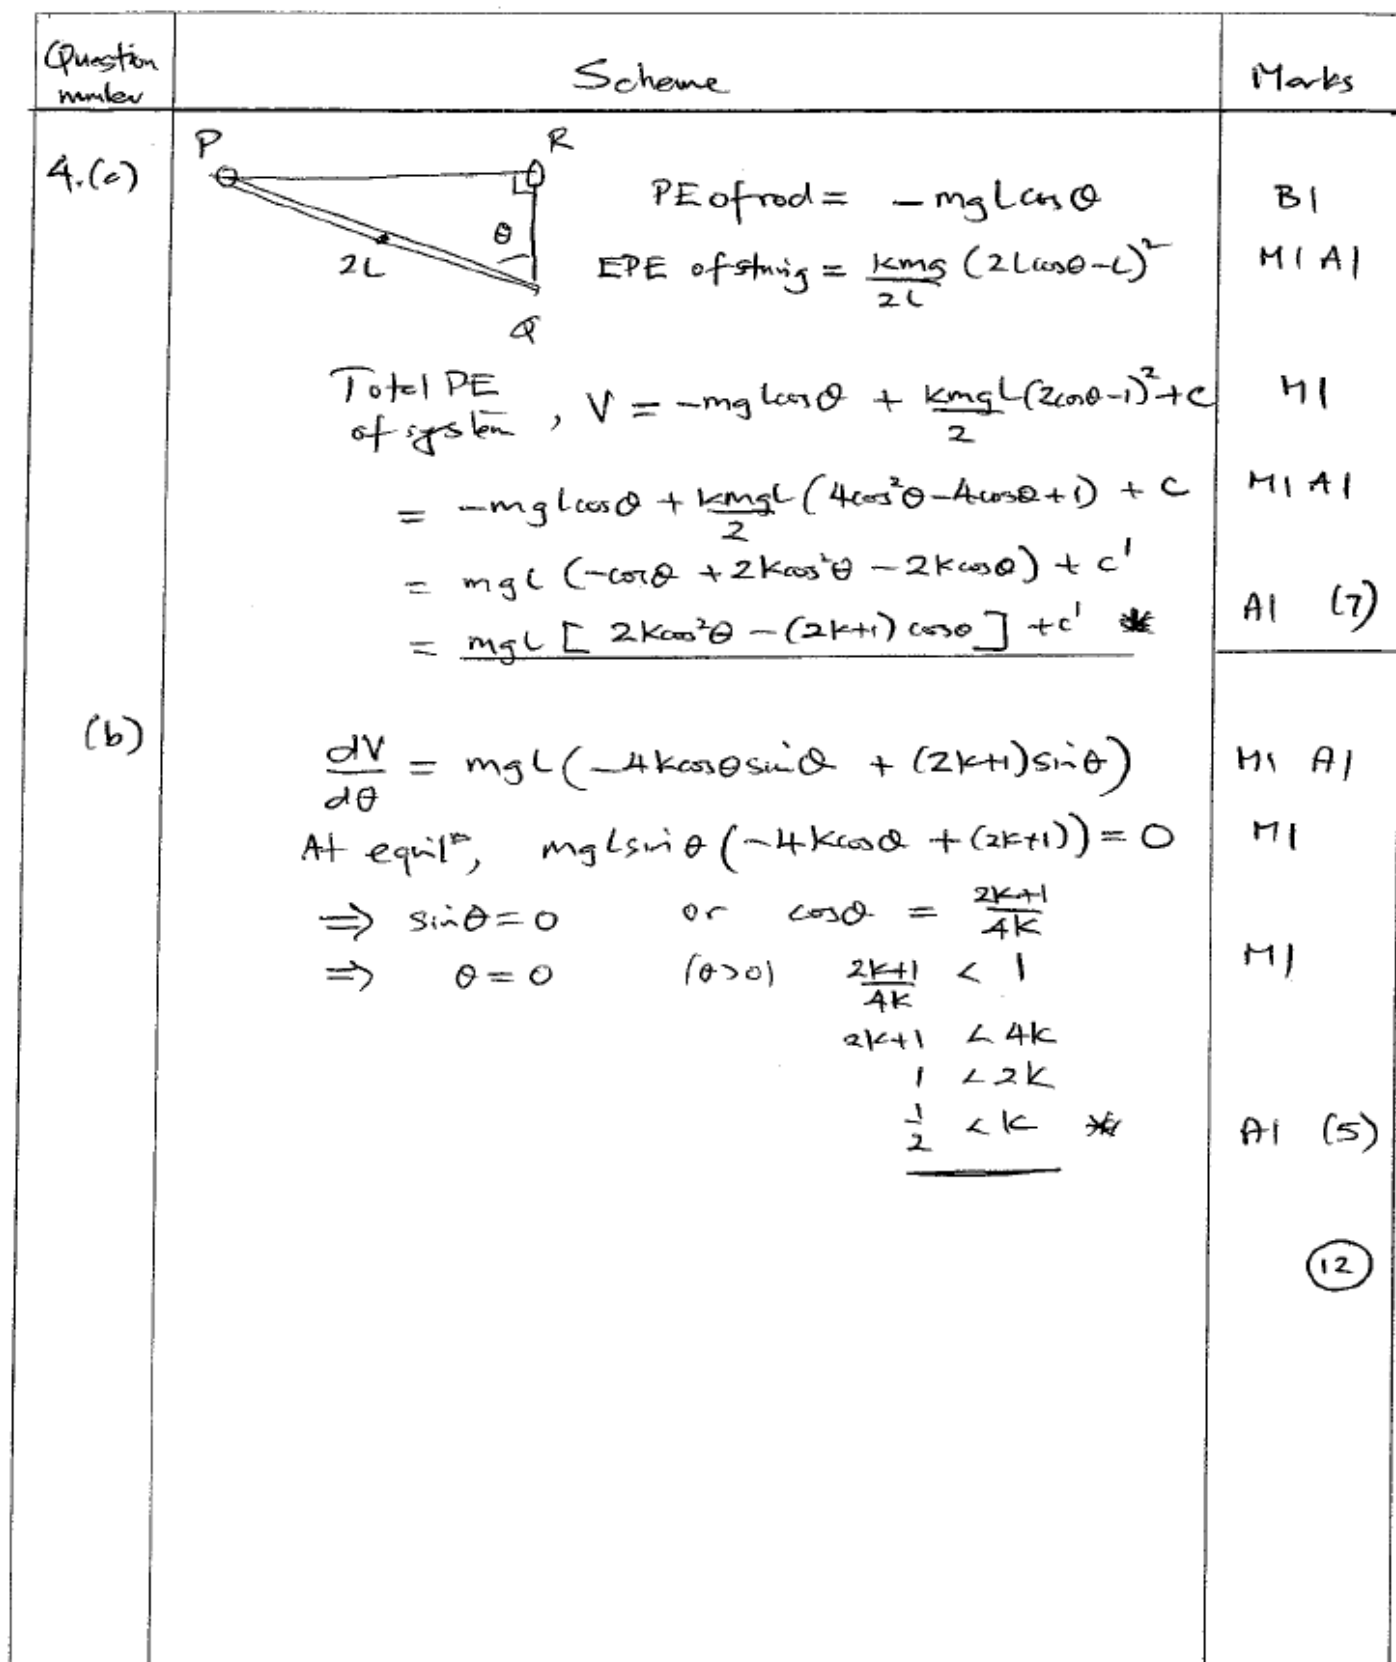 Question number Scheme Marks
4.(a) P R
θ
2L
Q
PE of rod = -mgLcosθ B1
EPE of string = kmg/2L (2Lcosθ-L)² M1 A1
Total PE of system, V = -mgLcosθ + kmgL/2 (2cosθ-1)² + c M1
= -mgLcosθ + kmgL/2 (4cos²θ-4cosθ+1) + c M1 A1
= mgL (-cosθ + 2kcos²θ - 2kcosθ) + c'
= mgL [ 2kcos²θ - (2k+1) cosθ ] + c' * A1 (7)
(b) dV/dθ = mgL(-4kcosθsinθ + (2k+1)sinθ) M1 A1
At equilᵐ, mgLsinθ(-4kcosθ + (2k+1)) = 0 M1
⇒ sinθ=0 or cosθ = 2k+1/4k
⇒ θ=0 (θ>0) 2k+1/4k < 1 M1
2k+1 < 4k
1 < 2k
1/2 < k * A1 (5)
12